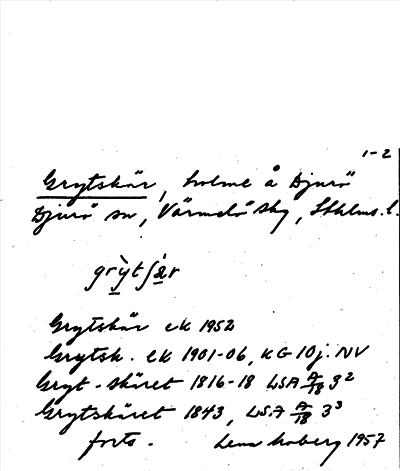 1-2
Grytskär, holme å Djurö
Djurö sn, Värmdö skg, Sthlms. l.
grỳtʃä̀r
Grytskär ek 1952
Grytsk. ek 1901-06, KG 10j. NV
Gryt-skäret 1816-18 LSA A/18 3²
Grytskäret 1843, LSA A/18 3³
forts. Lena Moberg 1957